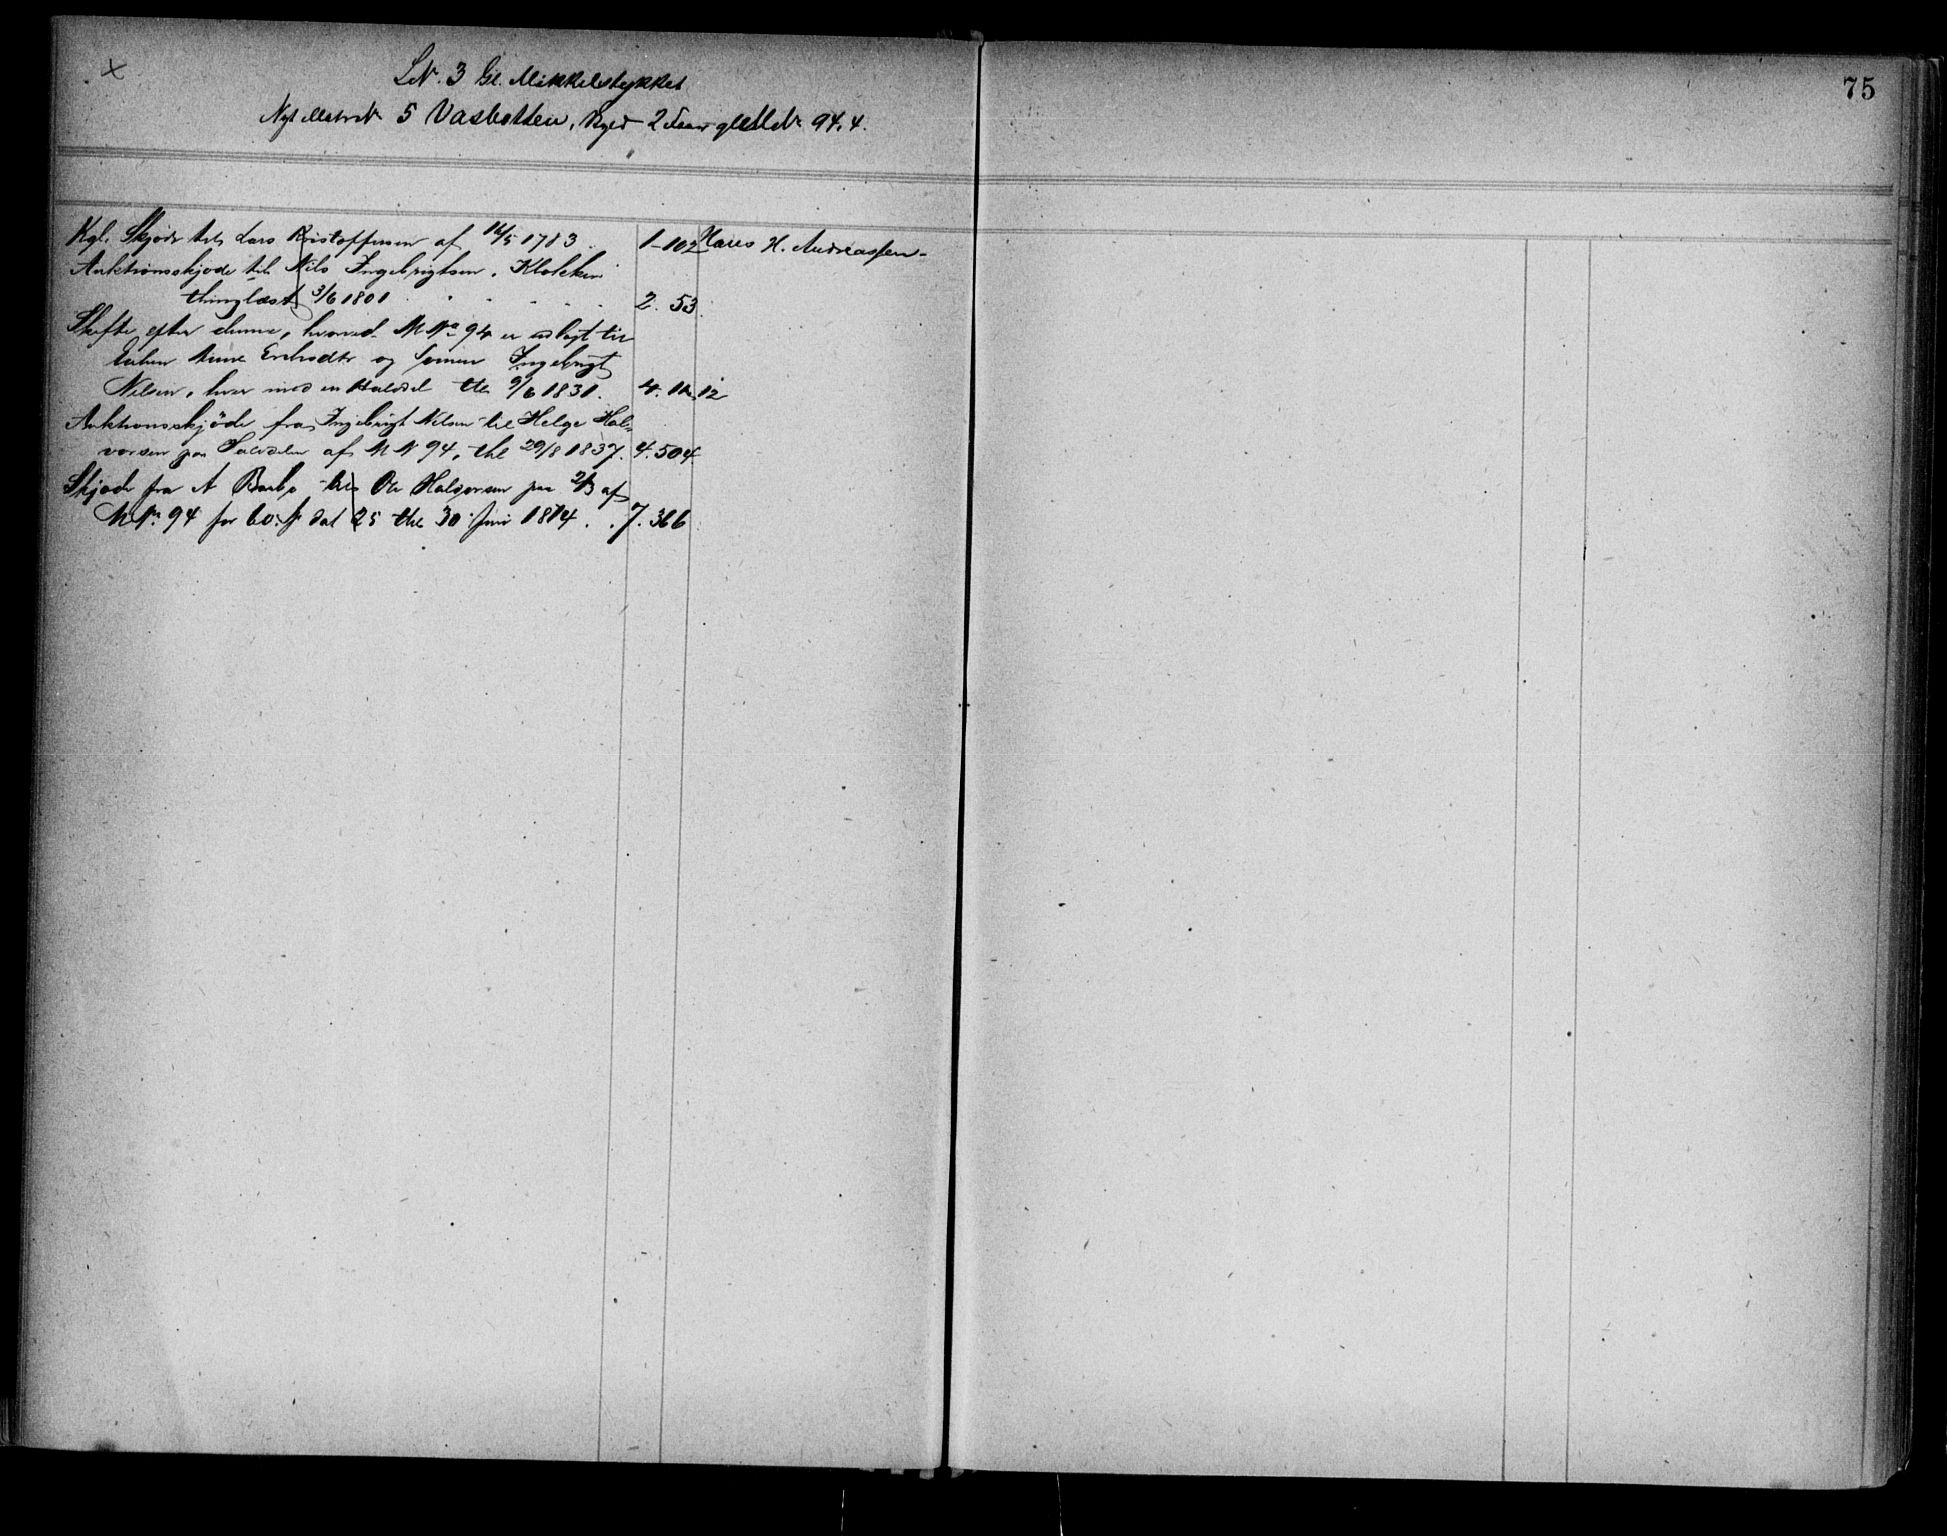 75
LN. 3 Gl. Mikkelstykket
Nyt Matr N 5 Vasbotten, Skyld 2 gl M No 94.4.
Kgl. Skjøde til Lars Kristoffersen af 16/5 1783. 1-102 Hans H. Andreassen-
Auktionsskjøde til Nils Ingebrigtsen, Klokken
thinglæst 3/6 1801 . . . . . 2. 53.
Skifte efter denne, hvorved M No 94 er udlagt til
Enken Anne og Sønnen Ingebrigt
Nilsen, hver med en Halvdel thl 9/6 1831. 4. 12
Auktionsskjöde fra Ingebrigt Nilsen til Helge Hal-
vorsen paa Halvdelen af M N 94, thl 29/8 1837. 4. 504.
Skjøde fra A Barbo til Ole Halvorsen paa 2/3 af
M No. 94 for 60 dat 25 thl 30 Juni 1874. . 7. 366